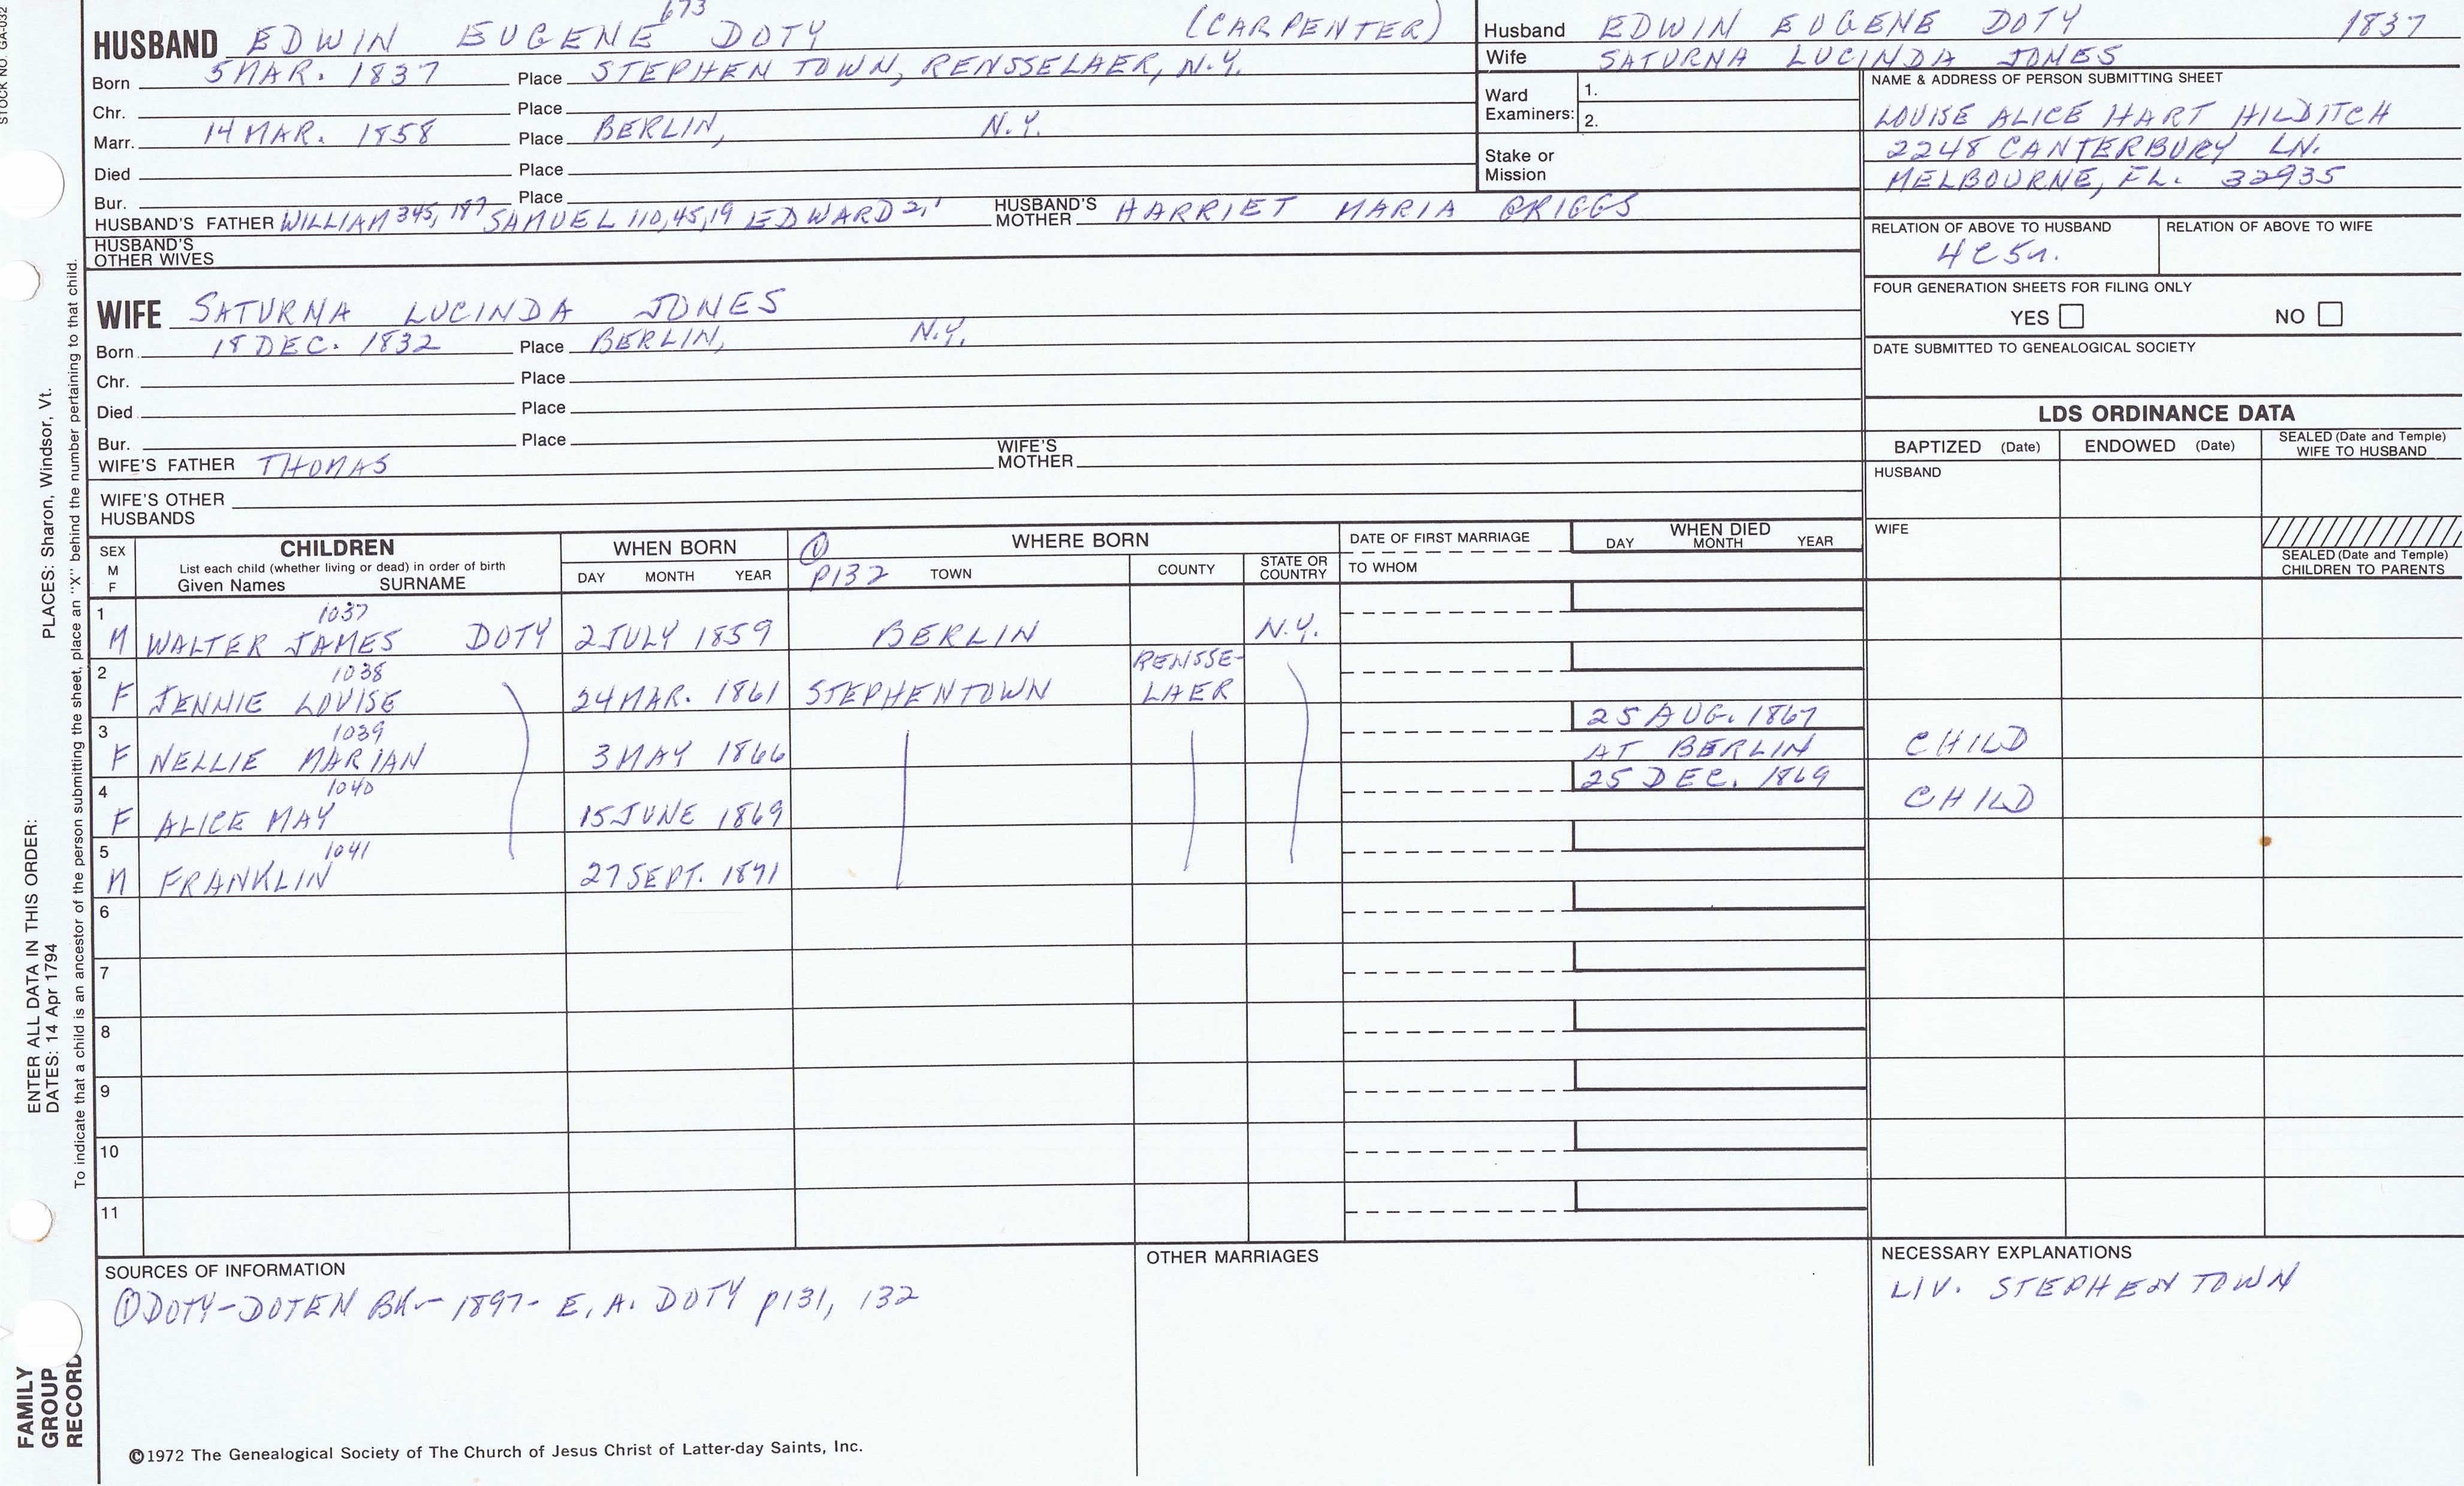 STOCK NO. GA-032
673
HUSBAND EDWIN EUGENE DOTY (CARPENTER)
Born 5 MAR. 1837 Place STEPHEN TOWN, RENSSELAER, N.Y.
Chr. Place
Marr. 14 MAR. 1858 Place BERLIN, N.Y.
Died Place
Bur. Place
HUSBAND'S FATHER WILLIAM 345, 187 SAMUEL 110,45,19 EDWARD 2,1 HUSBAND'S MOTHER HARRIET MARIA GRIGGS
HUSBAND'S OTHER WIVES
Husband EDWIN EUGENE DOTY 1837
Wife SATURNA LUCINDA JONES
Ward Examiners: 1.
2.
Stake or Mission
NAME & ADDRESS OF PERSON SUBMITTING SHEET
LOUISE ALICE HART HILDITCH
2248 CANTERBURY LN.
MELBOURNE, FL. 32935
RELATION OF ABOVE TO HUSBAND RELATION OF ABOVE TO WIFE
4C5r.
FOUR GENERATION SHEETS FOR FILING ONLY
YES NO
DATE SUBMITTED TO GENEALOGICAL SOCIETY
WIFE SATURNA LUCINDA JONES
Born 18 DEC. 1832 Place BERLIN, N.Y.
Chr. Place
Died Place
Bur. Place
WIFE'S FATHER THOMAS WIFE'S MOTHER
WIFE'S OTHER HUSBANDS
LDS ORDINANCE DATA
BAPTIZED (Date) ENDOWED (Date) SEALED (Date and Temple) WIFE TO HUSBAND
HUSBAND
WIFE
SEALED (Date and Temple) CHILDREN TO PARENTS
SEX M F
CHILDREN
List each child (whether living or dead) in order of birth
Given Names SURNAME
WHEN BORN
DAY MONTH YEAR
① P132
WHERE BORN
TOWN COUNTY STATE OR COUNTRY
DATE OF FIRST MARRIAGE
TO WHOM
WHEN DIED
DAY MONTH YEAR
1 1037
M WALTER JAMES DOTY 2 JULY 1859 BERLIN N.Y.
2 1038
F JENNIE LOUISE 24 MAR. 1861 STEPHENTOWN RENSSE-
LAER
3 1039 25 AUG. 1867
F NELLIE MARIAN 3 MAY 1866 AT BERLIN CHILD
4 1040 25 DEC. 1869
F ALICE MAY 15 JUNE 1869 CHILD
5 1041
M FRANKLIN 27 SEPT. 1871
6
7
8
9
10
11
SOURCES OF INFORMATION
① DOTY-DOTEN BK- 1897- E. A. DOTY p131, 132
OTHER MARRIAGES
NECESSARY EXPLANATIONS
LIV. STEPHENTOWN
©1972 The Genealogical Society of The Church of Jesus Christ of Latter-day Saints, Inc.
FAMILY
GROUP
RECORD
ENTER ALL DATA IN THIS ORDER:
DATES: 14 Apr 1794
PLACES: Sharon, Windsor, Vt.
To indicate that a child is an ancestor of the person submitting the sheet, place an "X" behind the number pertaining to that child.